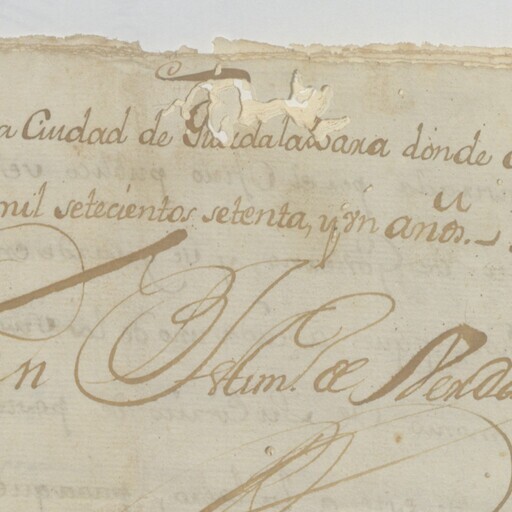 a Ciudad de Guadalaxara donde
mil setecientos setenta, y un años.
n Testim.º de Verda